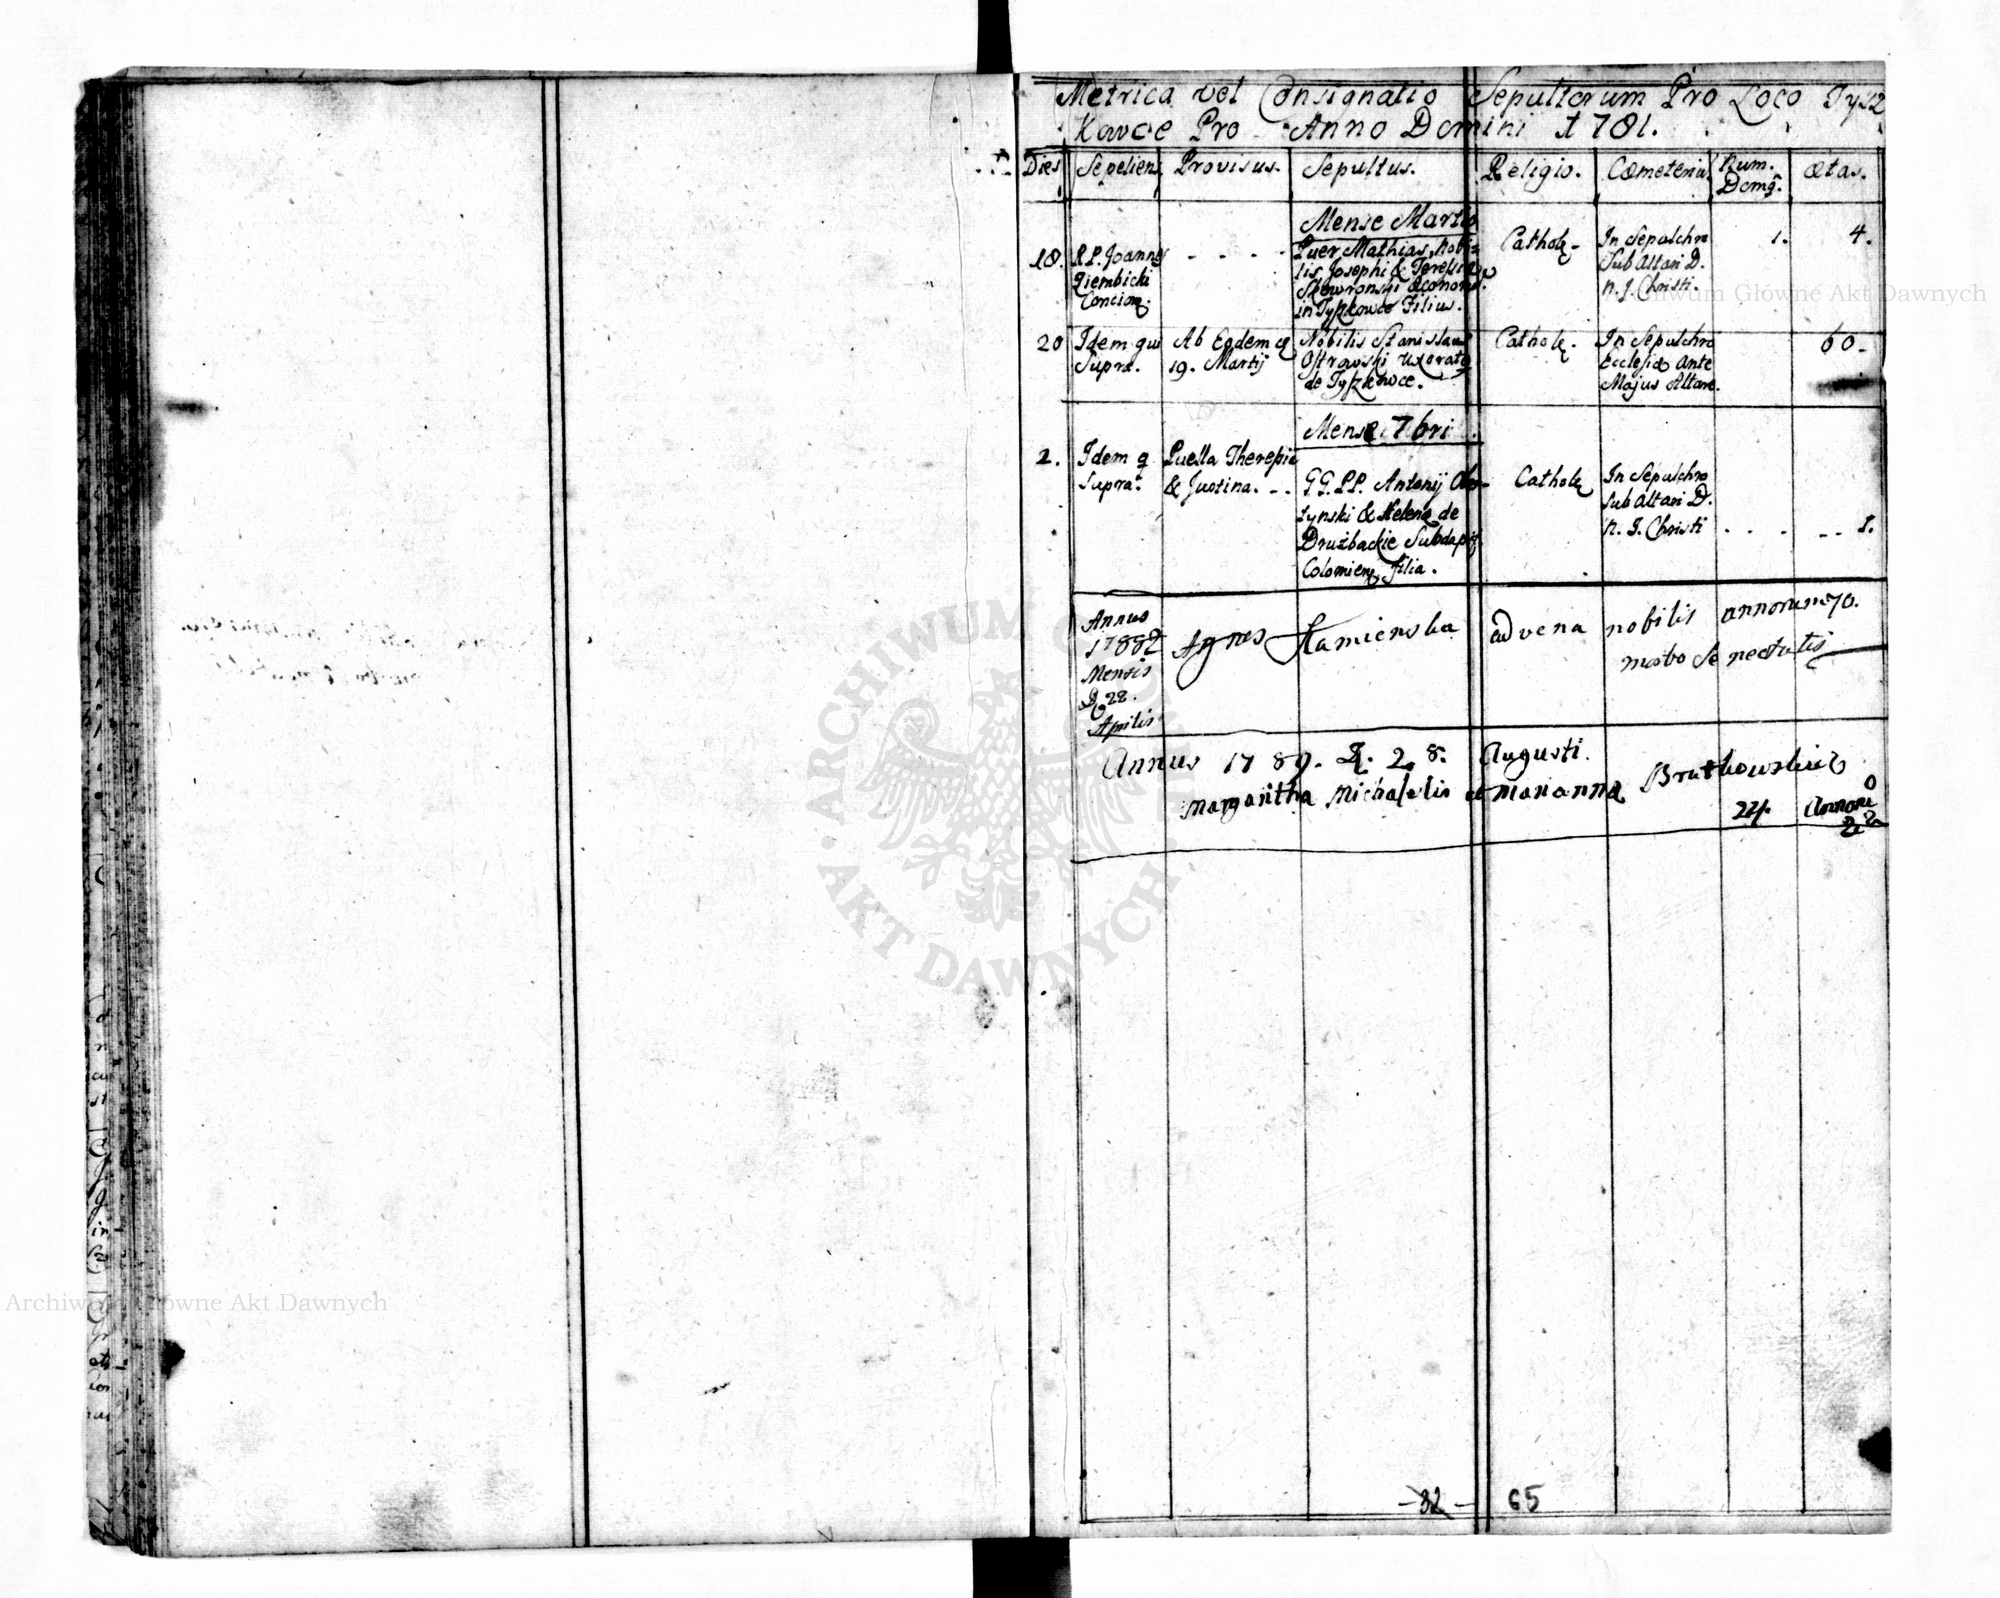 Metrica vel Consignatio Sepultorum Pro Loco Tysz
kowce Pro Anno Domini 1781.
Dies Sepeliens Provisus. Sepultus. Religio. Cœmeteriū Num. Domq. Ætas.
Mense Martio
18. R.P. Joannes
Ziembicki
Concion.
Puer Mathias, Nobi-
lis Josephi & Teresiæ
Skowronski Œconom.
in Tyszkowce Filius.
Cathol.
In Sepulchro
Sub Altari D.
N. J. Christi.
1. 4.
20 Idem qui
Supra.
Ab Eodem
19. Martij
Nobilis Stanislaus
Ostrowski uxorat9
de Tyszkowce.
Cathol.
In Sepulchro
Ecclesiæ Ante
Majus Altare.
60.
Mense 7bri.
2. Idem q
Supra.
Puella Theresia
& Justina.
G.G.P.P. Antonij
& Helena de
Druzbackie Subdapif
Colomien filia.
Cathol
In Sepulchro
Sub Altari D.
N. J. Christi
1.
Annus
Mensis
D 28.
Aprilis
Agnes Kamienska advena nobilis annorum 70.
morbo Senectutis
Annus 1789. D. 28. Augusti.
Margaritha Michaelis et Marianna
24.
32 65
Archiwum Główne Akt Dawnych
Archiwum Główne Akt Dawnych
ARCHIWUM GŁÓWNE AKT DAWNYCH